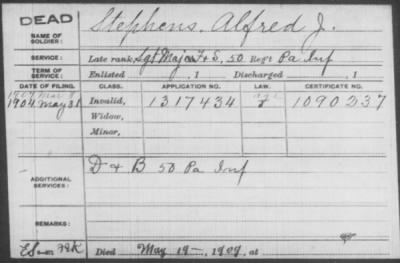 DEAD
NAME OF SOLDIER: Stephens, Alfred J.
SERVICE: Late rank, Sgt Major F+S, 50 Regt Pa Inf
TERM OF SERVICE: Enlisted , 1 Discharged , 1
DATE OF FILING. CLASS. APPLICATION NO. LAW. CERTIFICATE NO.
1904 May 31 Invalid, 1317434 1090237
Widow,
Minor,
ADDITIONAL SERVICES: D + B 50 Pa Inf
REMARKS:
Died May 19, 1909, at